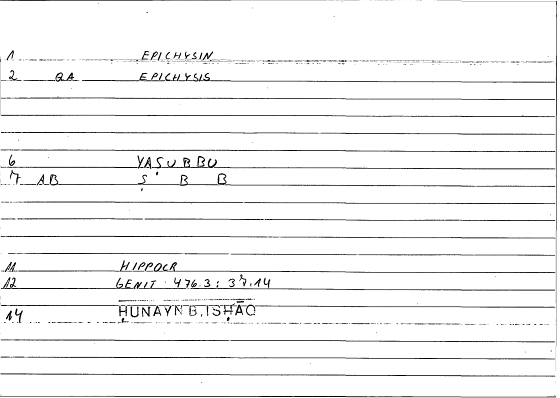 1 EPICHYSIN
2 QA EPICHYSIS
6 YAṢUBBU
7 AB Ṣ B B
11 HIPPOCR
12 GENIT 476.3 : 37.14
14 ḤUNAYN B. ISḤĀQ